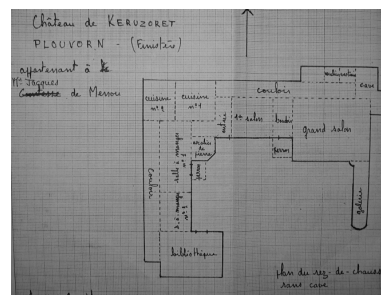 Château de KERUZORET
PLOUVORN - (Finistère)
appartenant à
Mr Jacques
de Menou
cuisine
n°2
cuisine
n°1
couloir
cave
entrée
1er salon
grand salon
escalier
de
pierre
perron
perron
couloir
salle à manger
n°1
s. à manger
n°2
galerie
bibliothèque
plan du rez-de-chaussée
sans cave